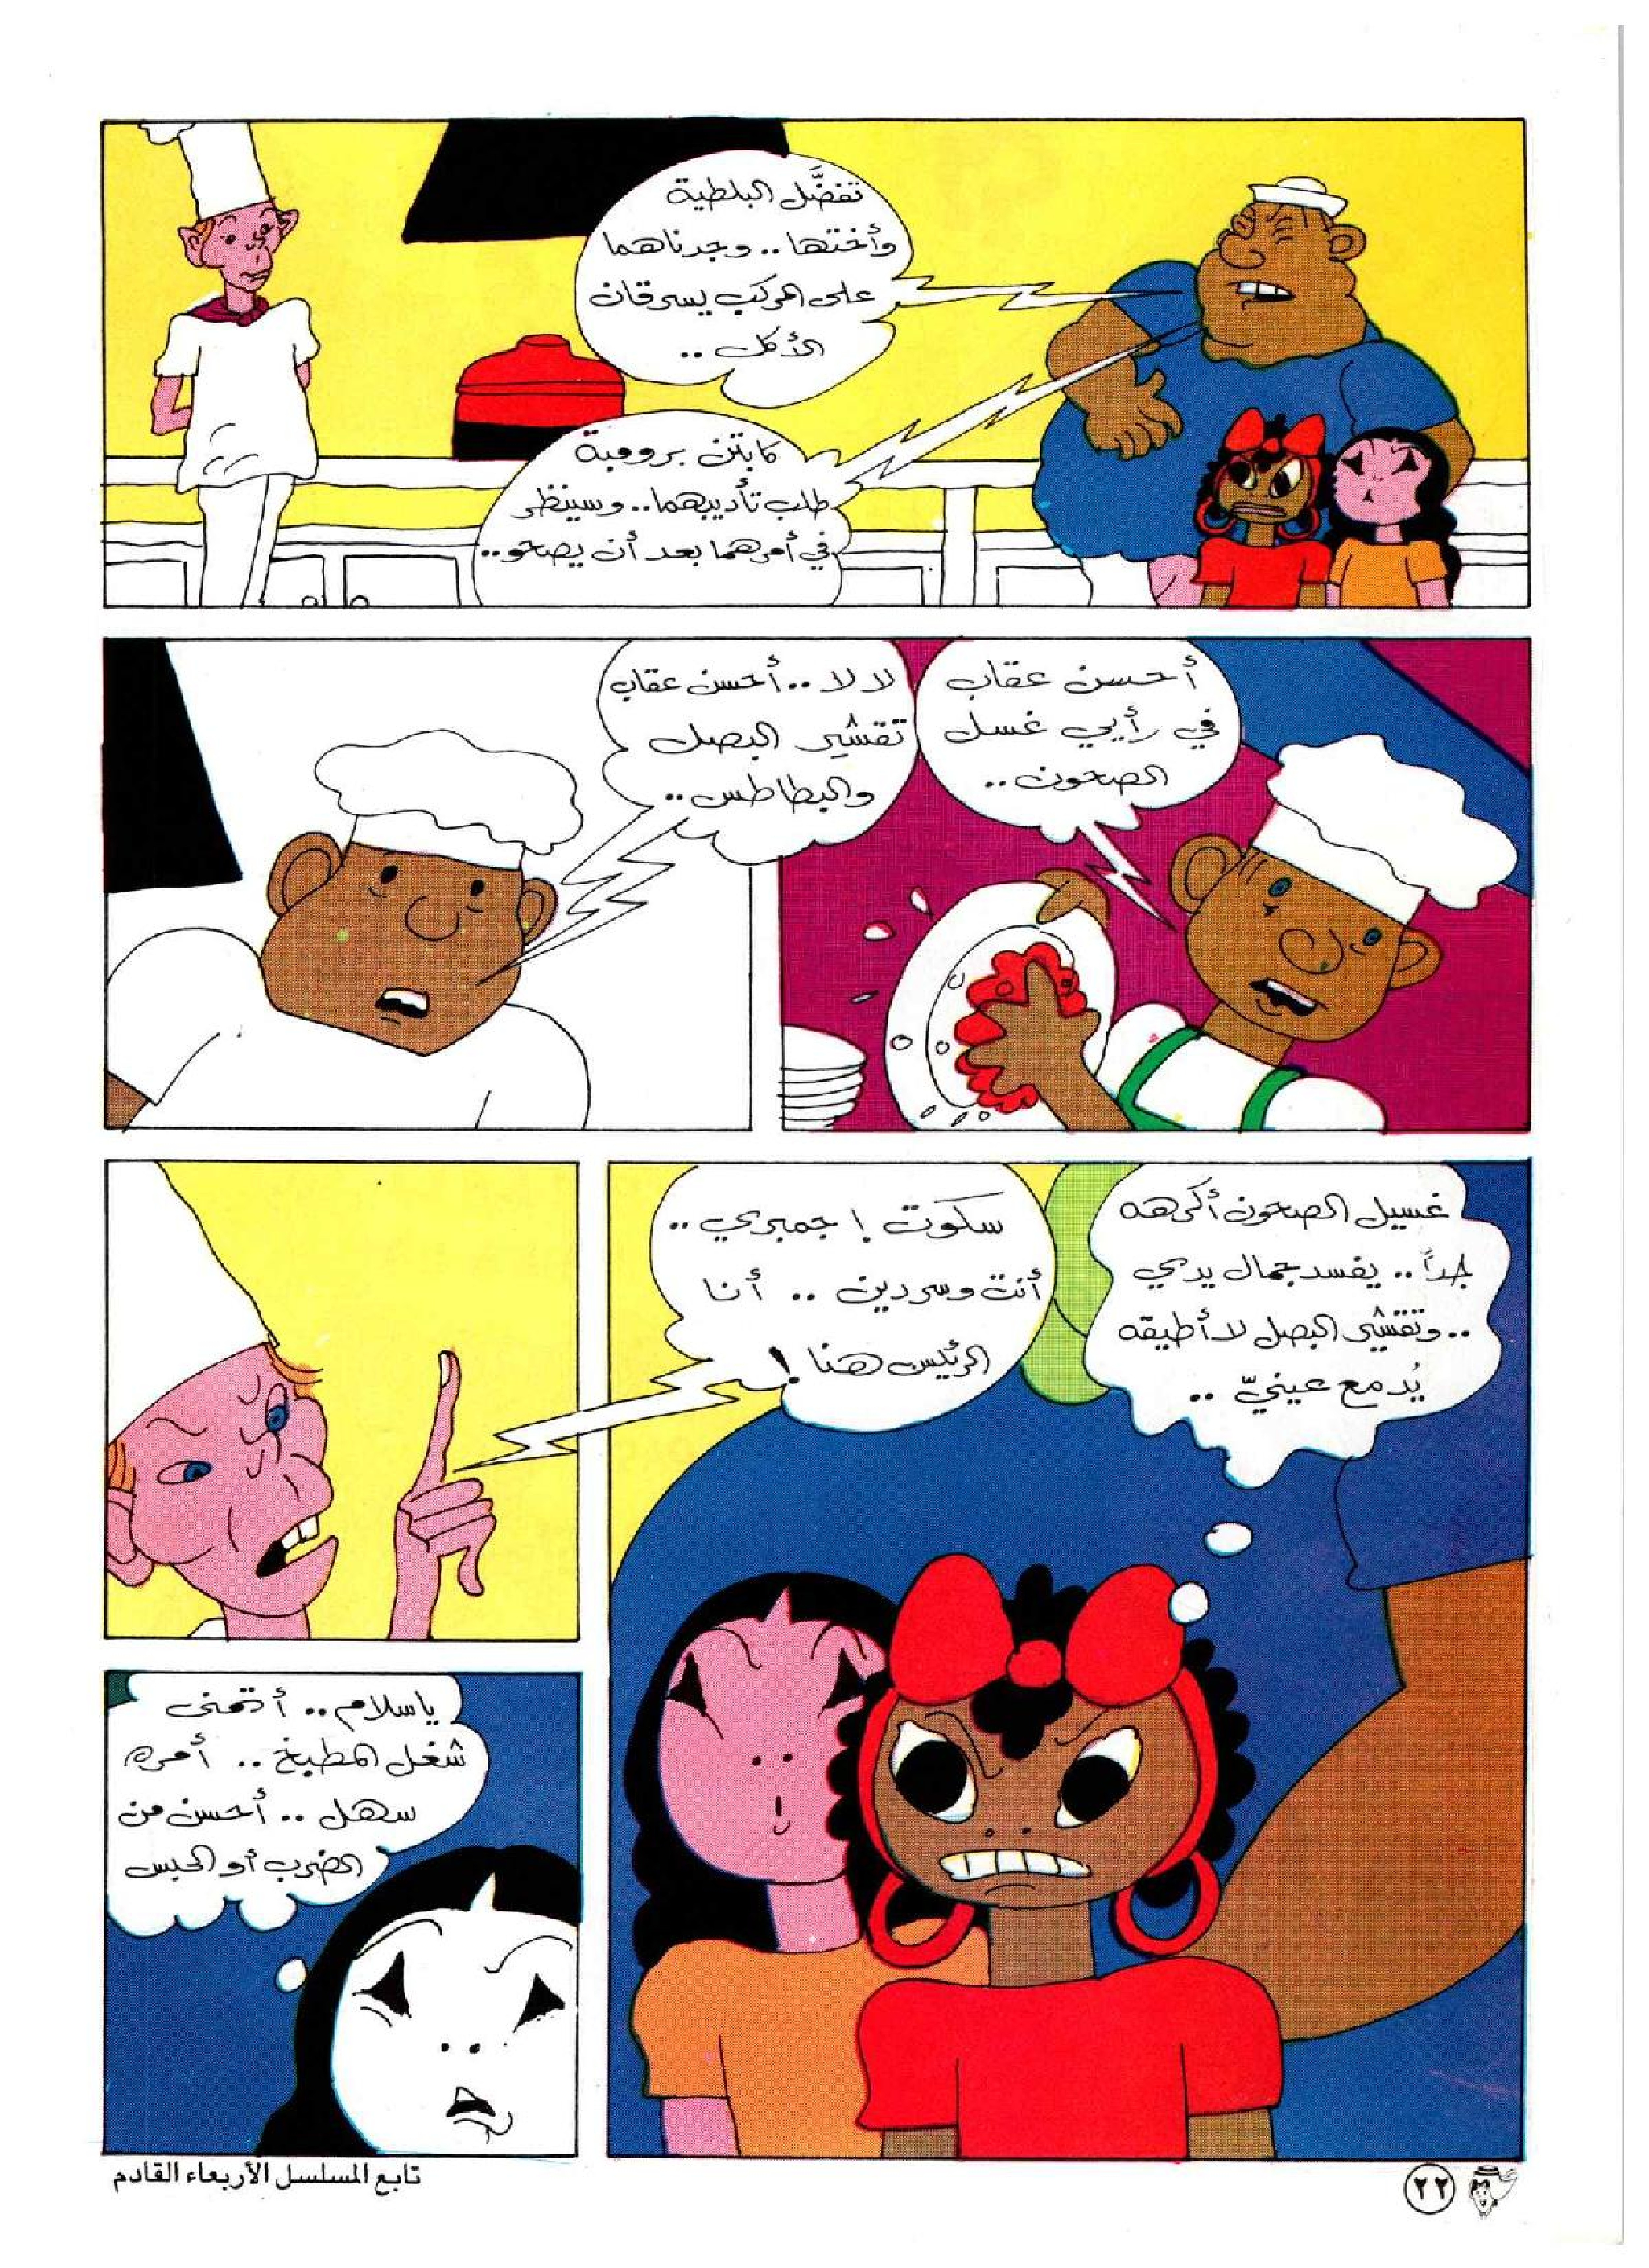 تفضَّل البلطية
وأختها.. وجدناهما
على المركب يسرقان
الأكل ..
كابتن برومبة
طلب تأديبهما.. وسينظر
في أمرهما بعد أن يصحو..
أحسن عقاب
في رأيي غسل
الصحون ..
لا لا .. أحسن عقاب
تقشير البصل
والبطاطس ..
غسيل الصحون أكرهه
جداً .. يفسد جمال يدي
.. وتقشير البصل لا أطيقه
يُدمع عينيّ ..
سكوت ! جمبري ..
أنت وسردين .. أنا
الرئيس هنا !
ياسلام .. أتمنى
شغل المطبخ .. أمره
سهل .. أحسن من
الضرب أو الحبس
تابع المسلسل الأربعاء القادم
٢٢